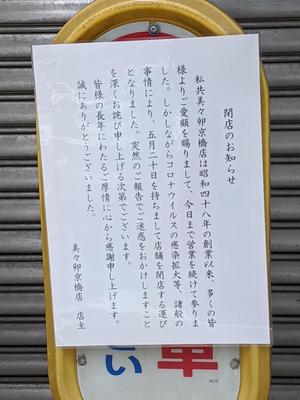 閉店のお知らせ
私共美々卯京橋店は昭和四十八年の創業以来、多くの皆
様よりご愛顧を賜りまして、今日まで営業を続けて参りま
した。しかしながらコロナウイルスの感染拡大等、諸般の
事情により、五月二十日を持ちまして店舗を閉店する運び
となりました。突然のご報告でご迷惑をおかけしますこと
を深くお詫び申し上げる次第でございます。
皆様の長年にわたるご厚情に心から感謝申し上げます。
誠にありがとうございました。
美々卯京橋店 店主
車
さい